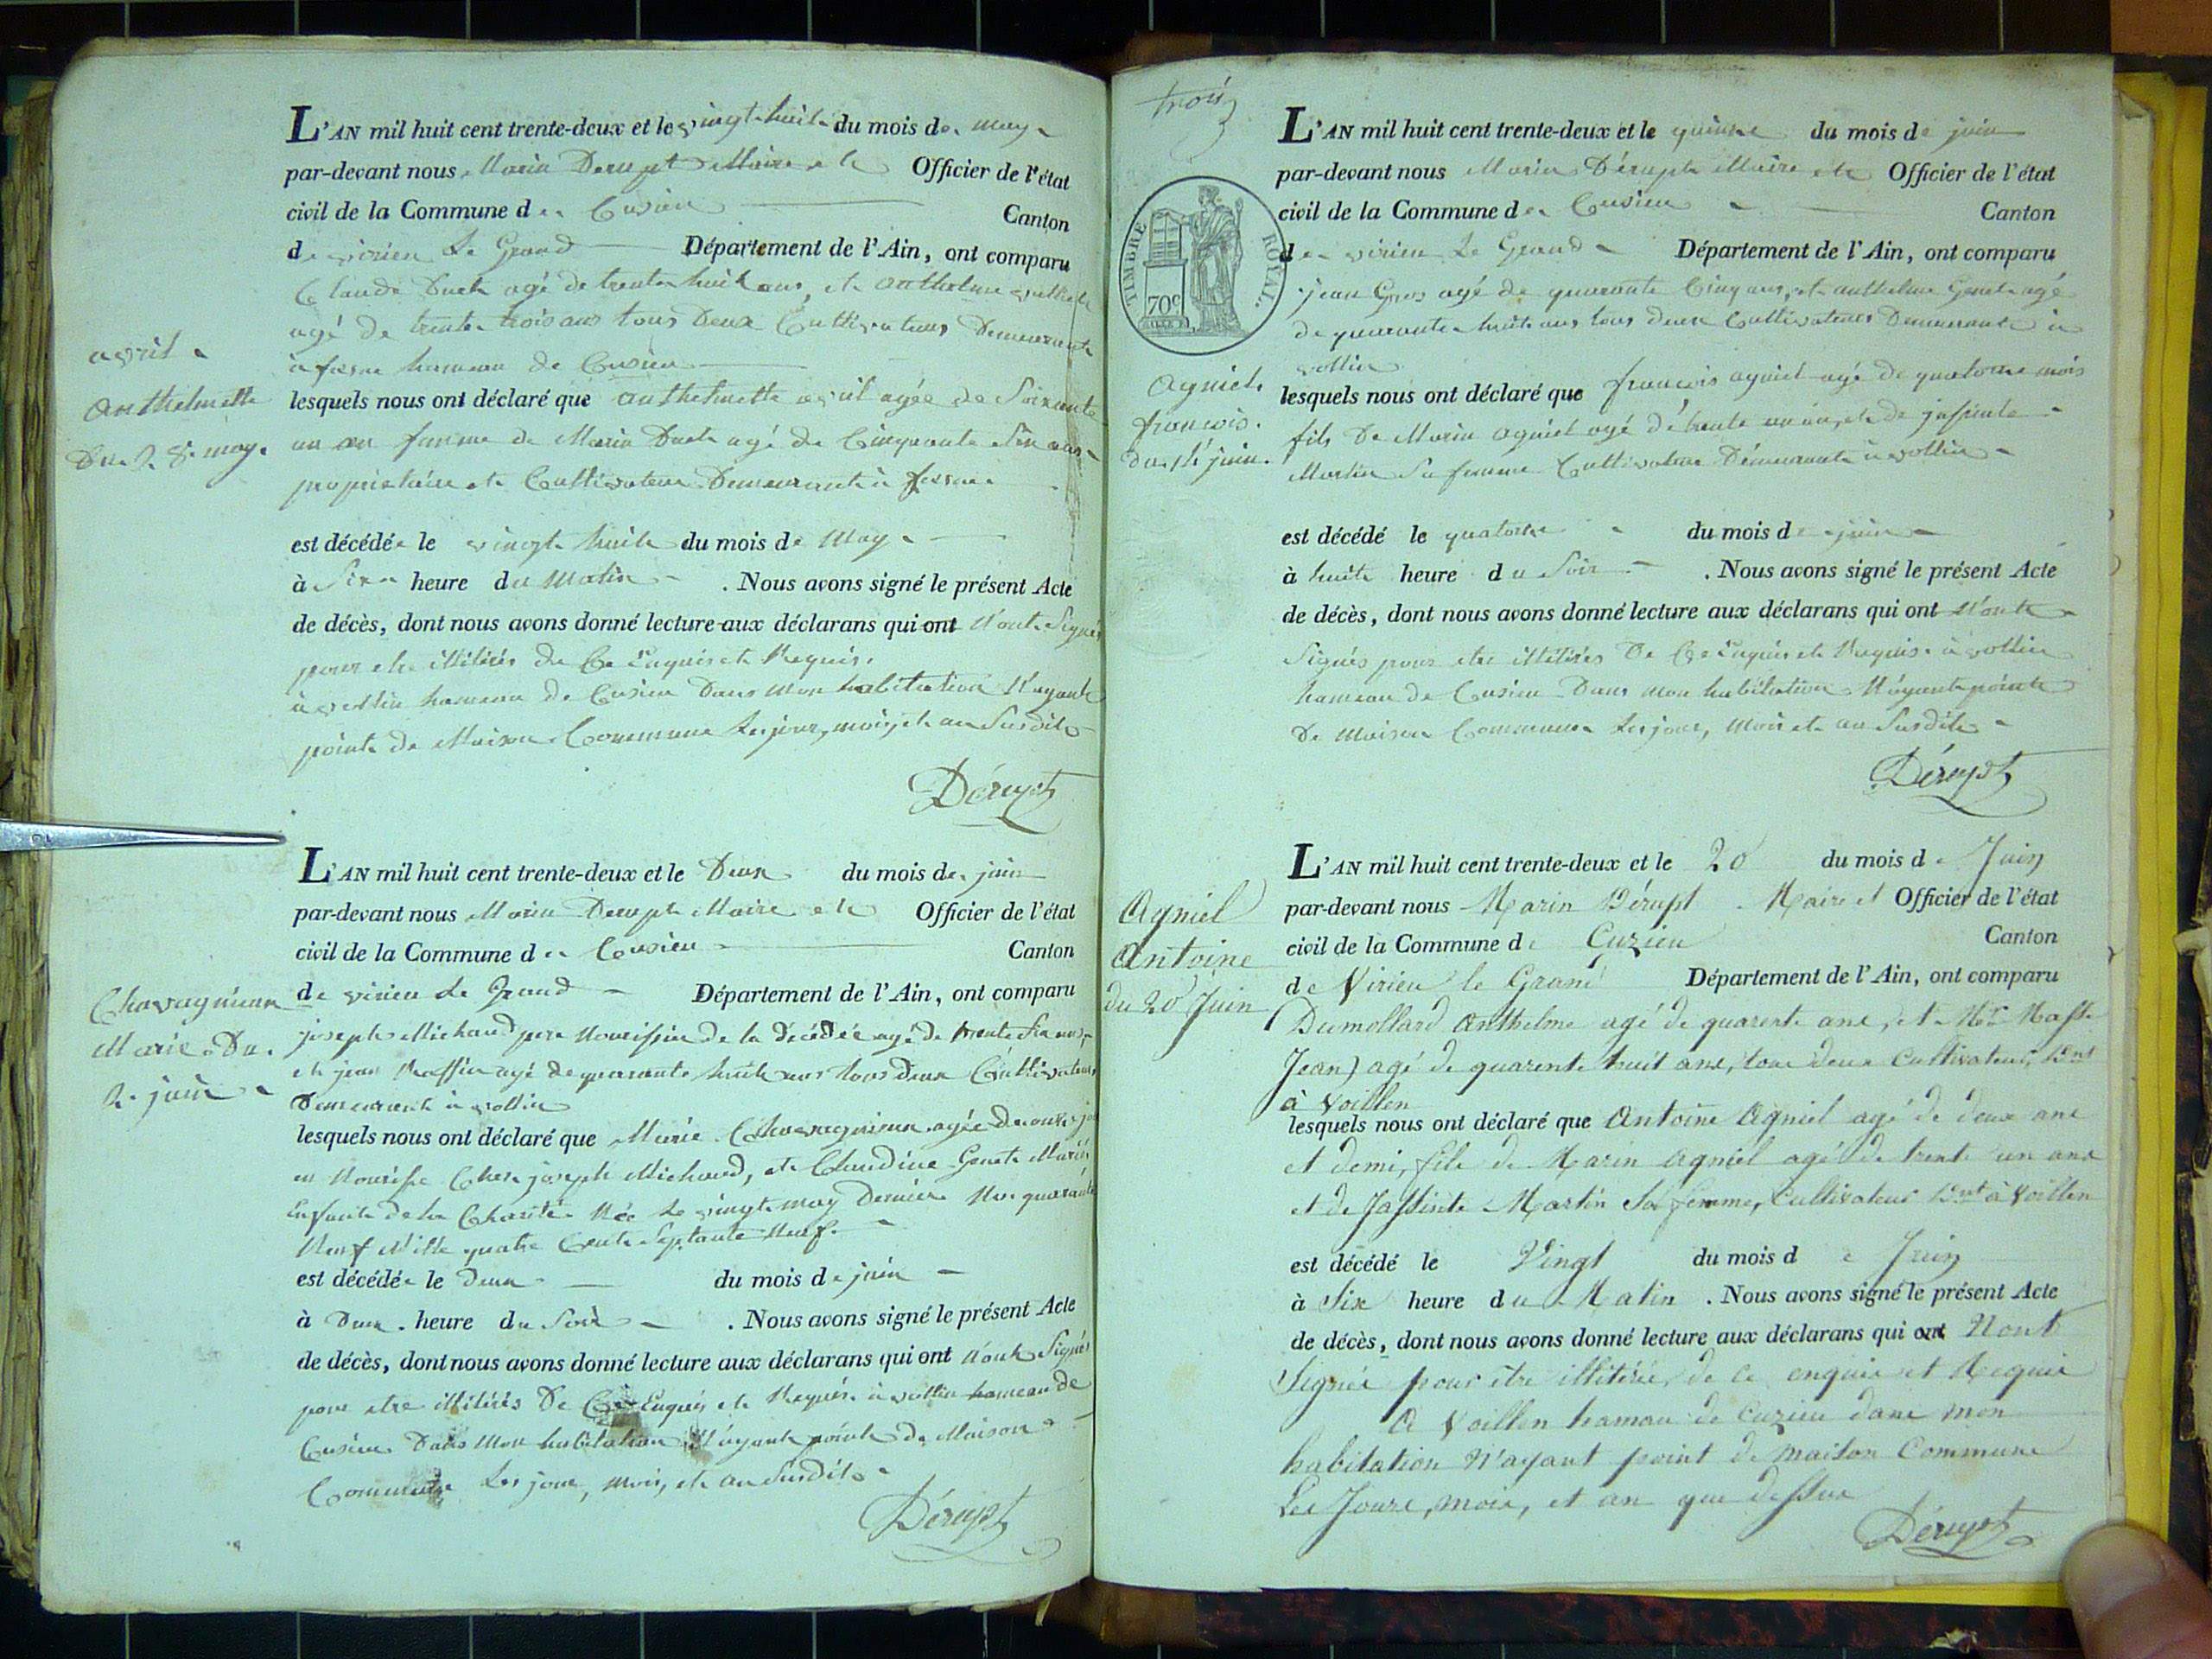 avril
Anthelmette
Du 28 may.
L'AN mil huit cent trente-deux et le vingt huit du mois de may
par-devant nous Marin Derupt Maire et Officier de l'état
civil de la Commune de Cusieu Canton
de virieu Le Grand Département de l'Ain, ont comparu
Claude Duet agé de trente huit ans, et anthelme
agé de trente trois ans tous Deux Cultivateurs Demeurant
à hameau de Cusieu
lesquels nous ont déclaré que anthelmette avril agée de Soixante
un an femme de Marin Duet agé de Cinquante Six ans
propriétaire et Cultivateur Demeurant à
est décédée le vingt huit du mois de May
à Six heure du Matin . Nous avons signé le présent Acte
de décès, dont nous avons donné lecture aux déclarans qui ont N'ont Signés
pour etre illitirés De Ce Enquis et Requis.
à vollin hameau de Cusieu Dans mon habitation N'ayant
point de Maison Commune Les jour, mois, et an Susdits
Dérupt
Chavagnieux
Marie Du
2 juin
L'AN mil huit cent trente-deux et le Deux du mois de juin
par-devant nous Marin Derupt Maire et Officier de l'état
civil de la Commune de Cusieu Canton
de virieu Le Grand Département de l'Ain, ont comparu
joseph Michaud pere Nourissier de la décédée agé de trente Six ans,
et jean Massin agé de quarante huit ans tous Deux Cultivateurs
Demeurant à vollin
lesquels nous ont déclaré que Marie Chavagnieux agée de onze
en Nourisse Chez joseph Michaud, et Claudine Genet Mariés
Enfant de la Charité Née Le vingt may Dernier No quarante
Neuf Mille quatre Cent Septante Neuf.
est décédée le deux du mois de juin
à Deux heure du Soir . Nous avons signé le présent Acte
de décès, dont nous avons donné lecture aux déclarans qui ont N'ont Signés
pour etre illitirés De Ce Enquis et Requis. à vollin hameau de
Cusieu Dans Mon habitation N'ayant point de Maison
Commune Les jour, mois, et an Susdits
Dérupt
trois
TIMBRE ROYAL.
70c
Agniel
françois.
du 15 juin.
L'AN mil huit cent trente-deux et le quinze du mois de juin
par-devant nous Marin Dérupt Maire et Officier de l'état
civil de la Commune de Cusieu Canton
de virieu Le Grand Département de l'Ain, ont comparu
jean Gros agé de quarante Cinq ans, et anthelme Genet agé
de quarante huit ans tous deux Cultivateurs Demeurant à
vollin
lesquels nous ont déclaré que françois agniel agé de quatorze mois
fils De Marin agniel agé de trente un an, et de jassinte
Martin Sa femme Cultivateur Demeurant à vollin
est décédé le quatorze du mois de juin
à huit heure du Soir . Nous avons signé le présent Acte
de décès, dont nous avons donné lecture aux déclarans qui ont N'ont
Signés pour etre illitirés De Ce Enquis et Requis. à vollin
hameau de Cusieu Dans mon habitation N'ayant point
De Maison Commune Les jour, mois et an Susdits
Dérupt
Agniel
Antoine
du 20 Juin
L'AN mil huit cent trente-deux et le 20 du mois de Juin
par-devant nous Marin Dérupt Maire et Officier de l'état
civil de la Commune de Cuzieu Canton
de Virieu le Grand Département de l'Ain, ont comparu
Dumollard Anthelme agé de quarente ans, et
Jean) agé de quarente huit ans, tous deux Cultivateurs Dnt
à Voillen
lesquels nous ont déclaré que Antoine Agniel agé de deux ans
et demi, fils de Marin Agniel agé de trente un ans
et de Jassinte Martin Sa femme, Cultivateur Dnt à Voillen
est décédé le Vingt du mois de Juin
à Six heure du Matin . Nous avons signé le présent Acte
de décès, dont nous avons donné lecture aux déclarans qui ont Nont
Signés pour être illitirés, de ce enquis et Requis
A Voillen hamau de Cuzieu dans mon
habitation N'ayant point de maison Commune
Les Jours, mois, et an que dessus
Dérupt